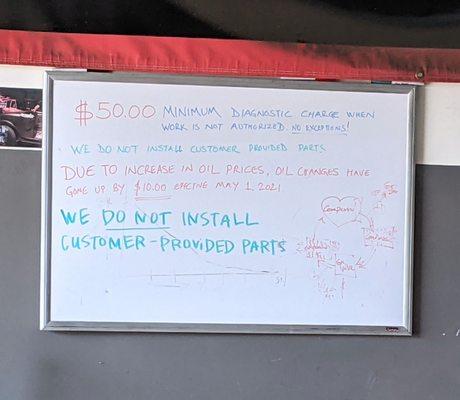 $50.00 MINIMUM DIAGNOSTIC CHARGE WHEN
WORK IS NOT AUTHORIZED. NO EXCEPTIONS!
WE DO NOT INSTALL CUSTOMER PROVIDED PARTS
DUE TO INCREASE IN OIL PRICES, OIL CHANGES HAVE
GONE UP BY $10.00 EFFECING MAY 1, 2021
WE DO NOT INSTALL
CUSTOMER-PROVIDED PARTS